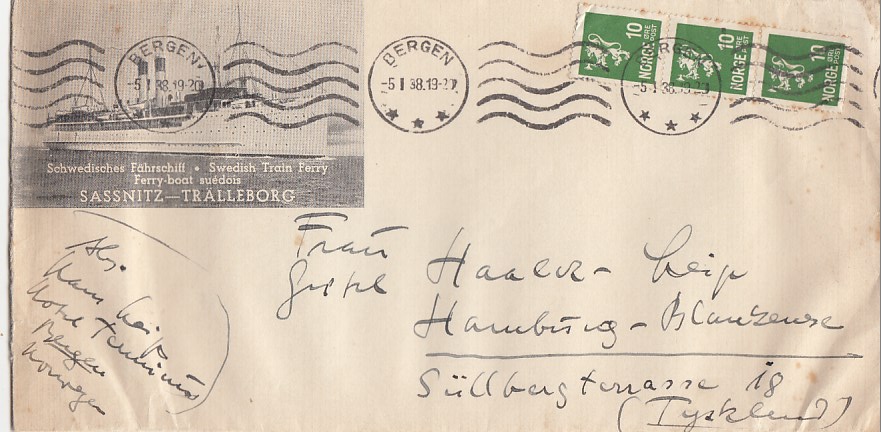 BERGEN
-5 I 38.19-20
BERGEN
-5 I 38.19-20
BERGEN
-5 I 38.19-20
10 ØRE
NORGE POST
10 ØRE
NORGE POST
10 ØRE
NORGE POST
Schwedisches Fährschiff • Swedish Train Ferry
Ferry-boat suédois
SASSNITZ—TRÄLLEBORG
Frau
Gritel Haalck-Leip
Hamburg-Blankenese
Süllbergterrasse 18
(Tyskland)
Abs.
Hans Leip
Hotel Terminus
Bergen
Norwegen